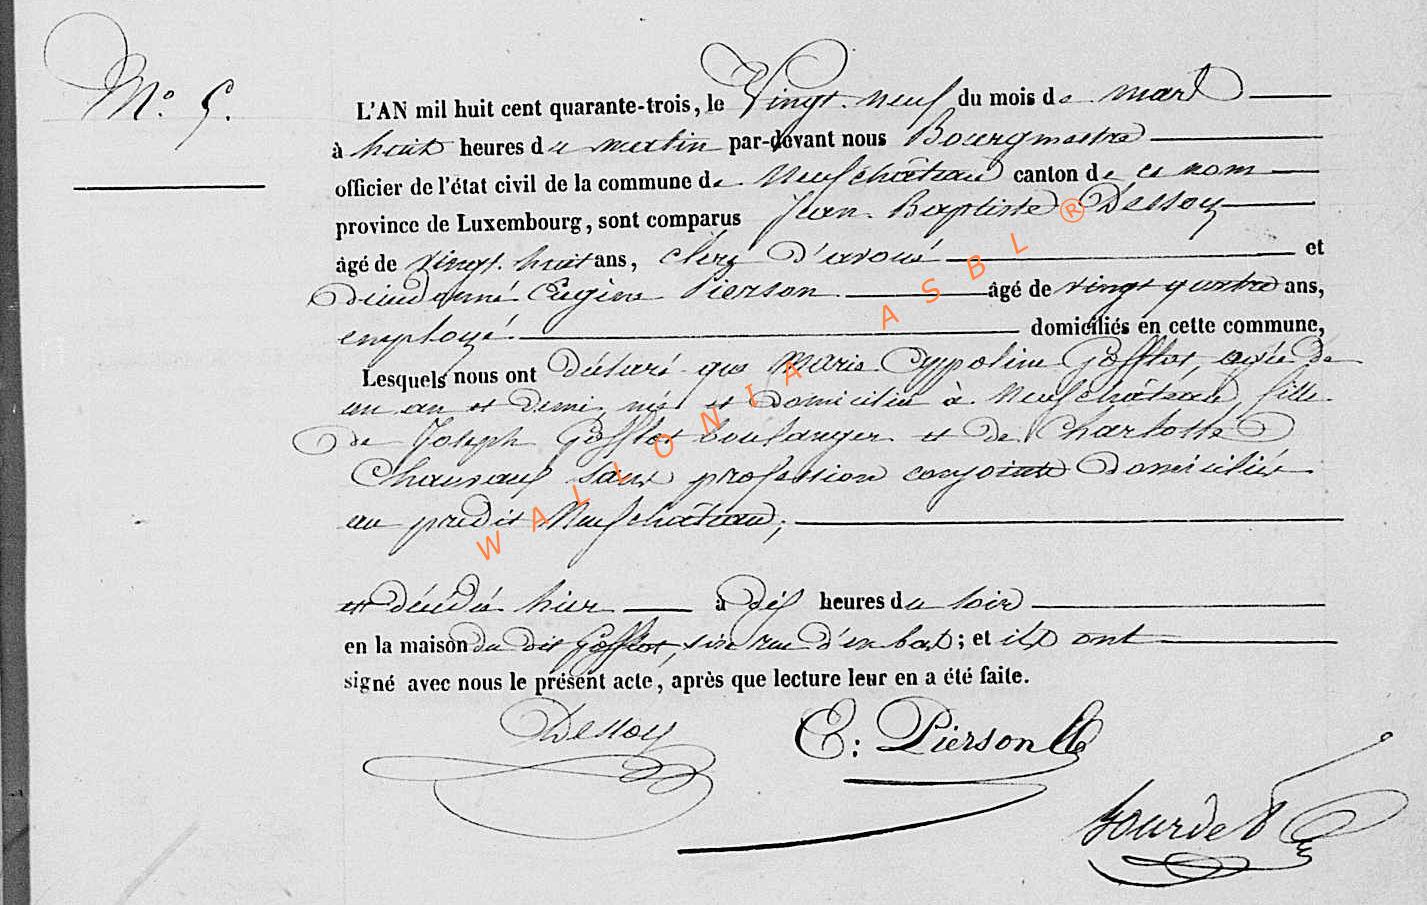 N° 5.
L'AN mil huit cent quarante-trois, le Vingt-neuf du mois de mars
à huit heures du matin par-devant nous Bourgmestre
officier de l'état civil de la commune de Neufchâteau canton de ce nom
province de Luxembourg, sont comparus Jean Baptiste Dessoy
âgé de vingt-huit ans, clerc d'avoué et
Dieudonné Eugène Pierson âgé de vingt quatre ans,
employé. domiciliés en cette commune,
Lesquels nous ont déclaré que Marie Appoline Gofflot, agée de
un an et demi, née et domiciliée à Neufchâteau, fille
de Joseph Gofflot boulanger et de Charlotte
sans profession conjoints domiciliés
au predit Neufchâteau;
est décédée hier à dix heures du soir
en la maison du dit Gofflot, sise rue d'en bas; et ils ont
signé avec nous le présent acte, après que lecture leur en a été faite.
Dessoy
E: Pierson
Bourdet
WALLONIA ASBL ®